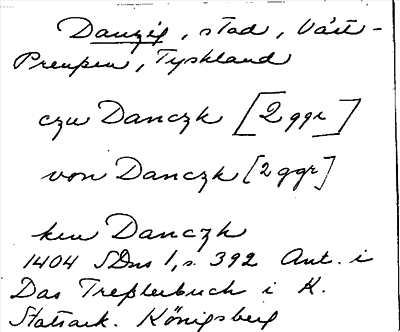 Danzig, stad, Väst-
Preuszen, Tyskland
czu Danczk [2 ggr]
von Danczk [2 ggr]
ken Danczk
1404 SDns 1, s. 392 Ant. i
Das Treszlerbuch i K.
Statsark. Königsberg